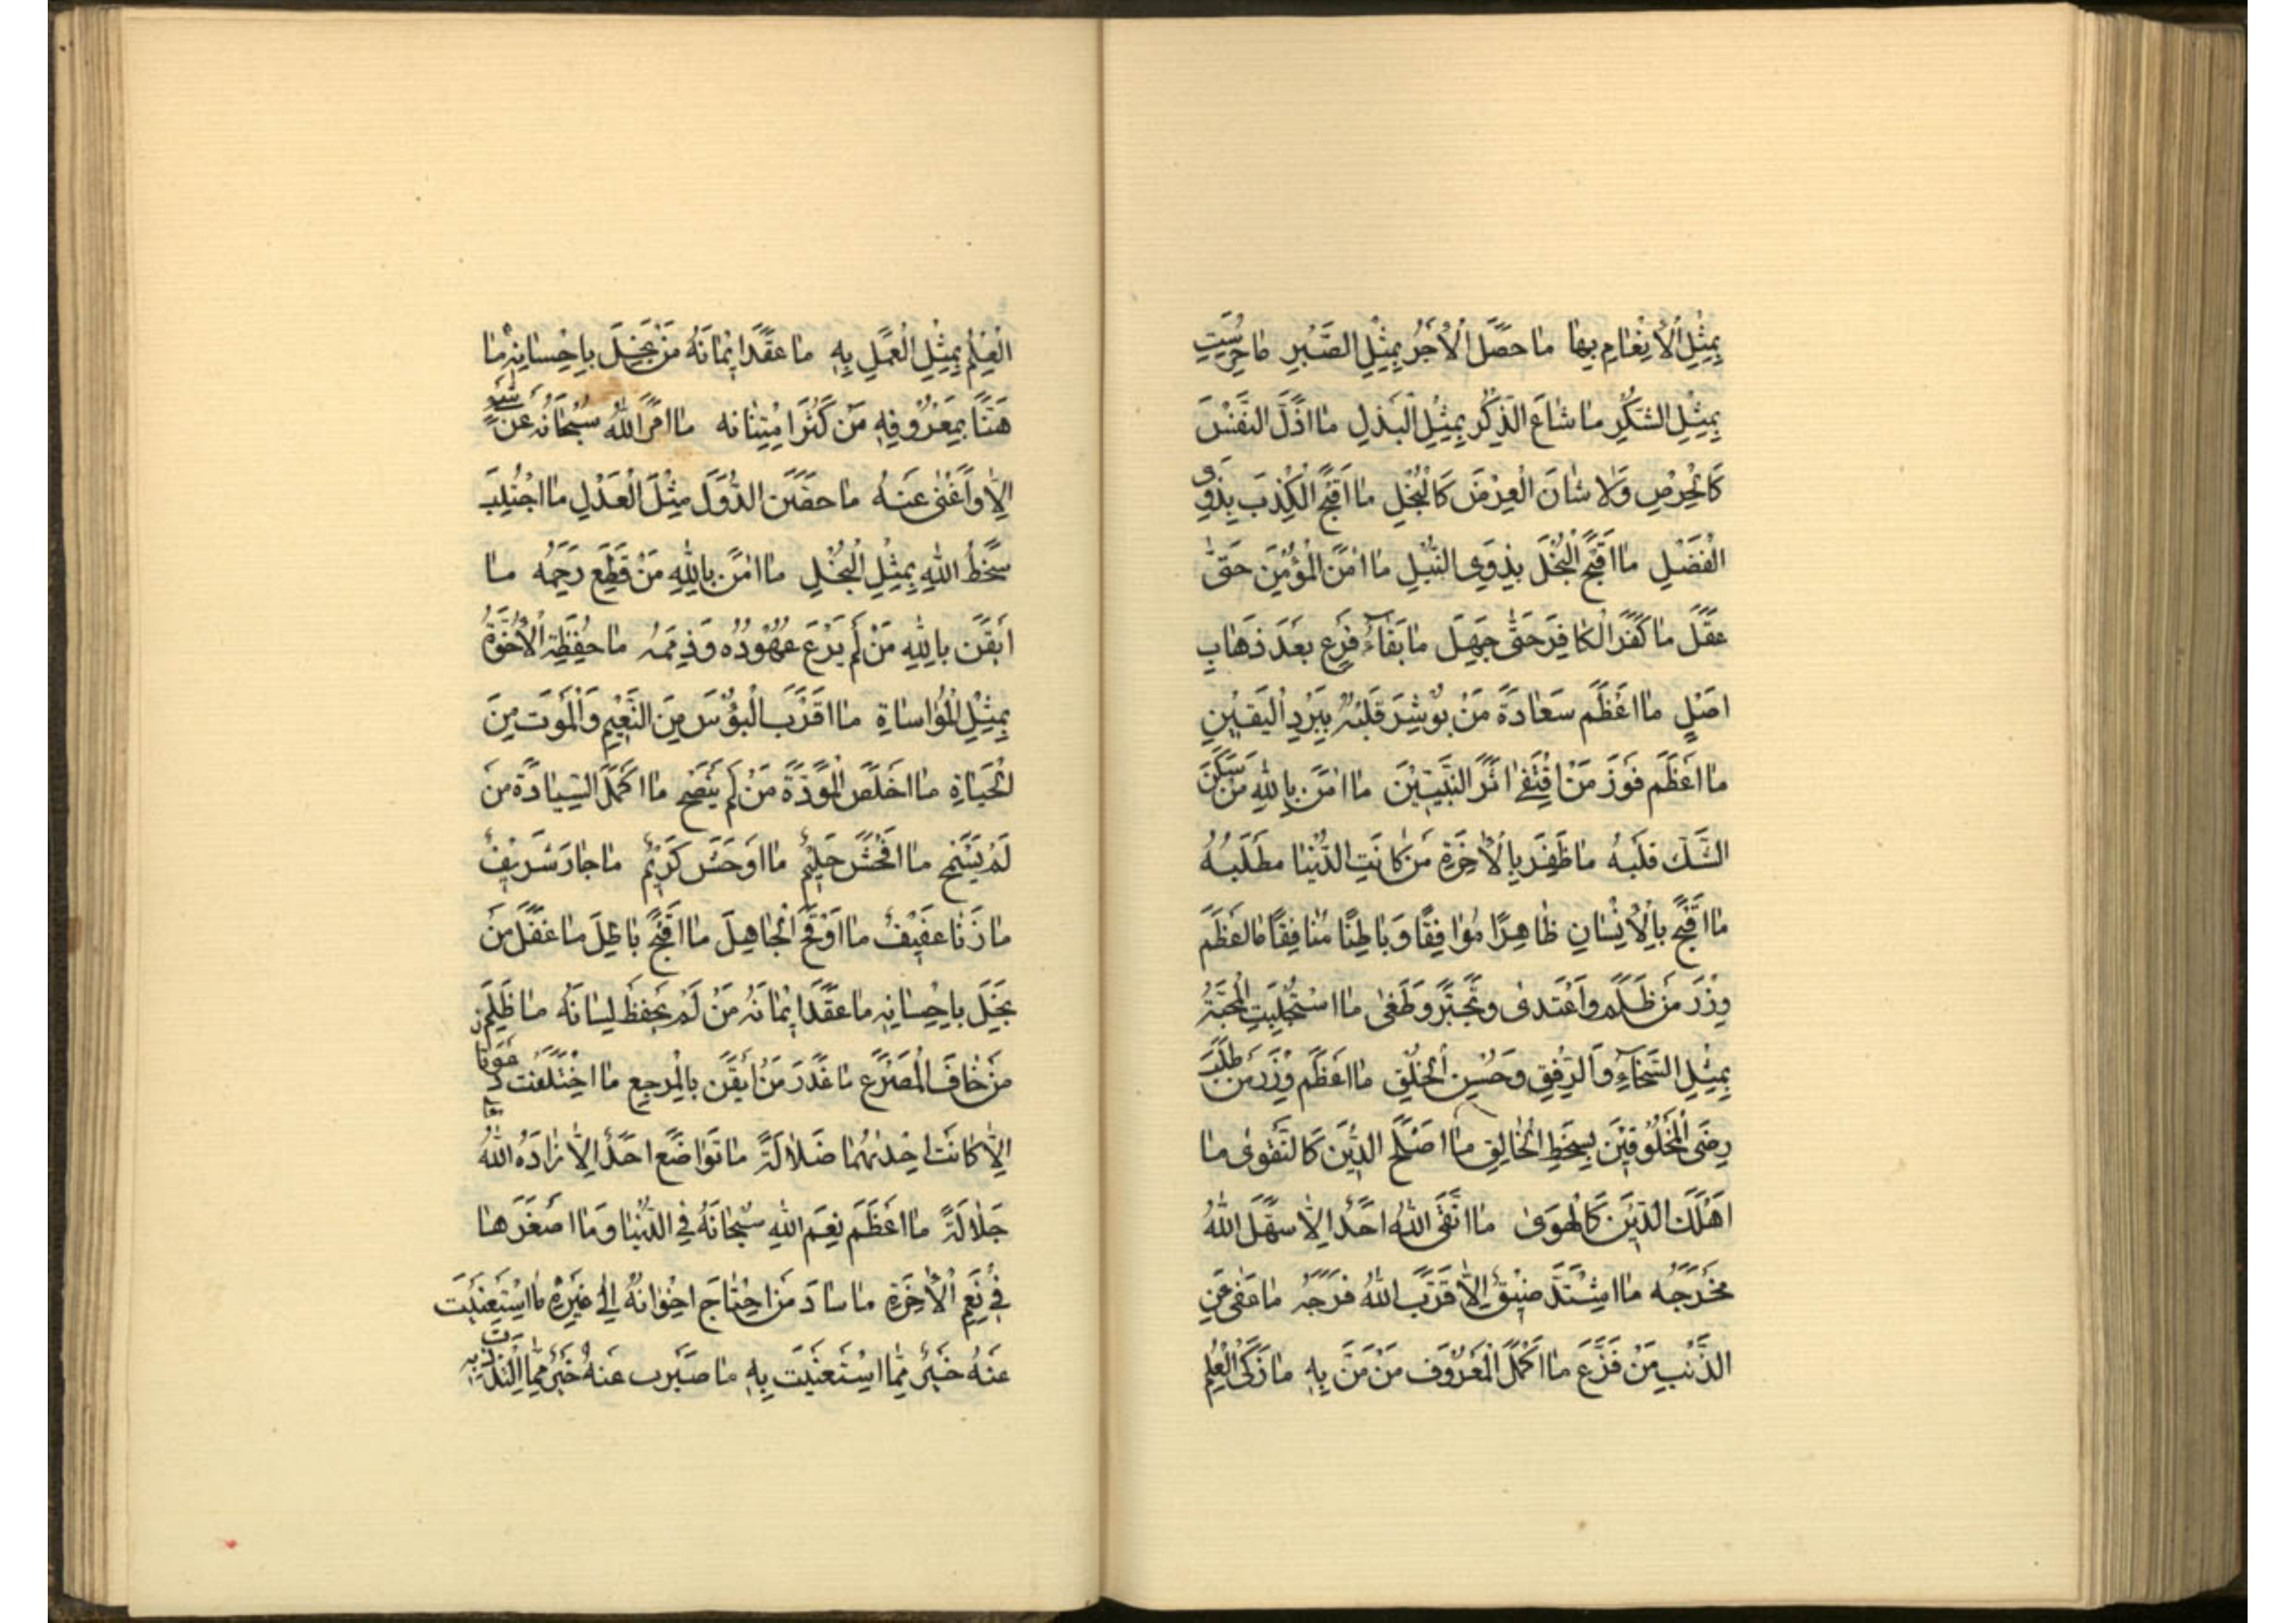 بِمِثْلِ الْاِنْعٰامِ بِهٰا مٰا حَصَّلَ الْاَجْرَ بِمِثْلِ الصَّبْرِ مٰا حُرِسَتِ
بِمِثْلِ الشُّكْرِ مٰا شٰاعَ الذِّكْرُ بِمِثْلِ الْبَذْلِ مٰا اَذَلَّ النَّفْسَ
كَالْحِرْصِ وَلٰا شٰانَ الْعِرْضَ كَالْبُخْلِ مٰا اَقْبَحَ الْكِذْبَ بِذَوِى
الْفَضْلِ مٰا اَقْبَحَ الْبُخْلَ بِذَوِى النُّبْلِ مٰا اٰمَنَ الْمُؤْمِنَ حَتّٰى
عَقَلَ مٰا كَفَرَ الْكٰافِرَ حَتّٰى جَهِلَ مٰا بَقٰآءُ فَرْعٍ بَعْدَ ذَهٰابِ
اَصْلٍ مٰا اَعْظَمَ سَعٰادَةَ مَنْ بُوشِرَ قَلْبُهُ بِبَرْدِ الْيَقٖينِ
مٰا اَعْظَمَ فَوْزَ مَنْ اقْتَفٰى اَثَرَ النَّبِيّٖينَ مٰا اٰمَنَ بِاللّٰهِ مَنْ سَكَنَ
الشَّكُّ قَلْبَهُ مٰا ظَفِرَ بِالْاٰخِرَةِ مَنْ كٰانَتِ الدُّنْيٰا مَطْلَبُهُ
مٰا اَقْبَحَ بِالْاِنْسٰانِ ظٰاهِرًا مُوٰافِقًا وَبٰاطِنًا مُنٰافِقًا مٰا اَعْظَمَ
وِزْرَ مَنْ ظَلَمَ وَاعْتَدٰى وَتَجَبَّرَ وَطَغٰى مٰا اسْتُجْلِبَتِ الْمَحَبَّةُ
بِمِثْلِ السَّخٰآءِ وَالرِّفْقِ وَحُسْنِ الْخُلْقِ مٰا اَعْظَمَ وِزْرَ مَنْ طَلَبَ
رِضَى الْمَخْلُوقٖينَ بِسَخَطِ الْخٰالِقِ مٰا اَصْلَحَ الدّٖينَ كَالتَّقْوٰى مٰا
اَهْلَكَ الدّٖينَ كَالْهَوٰى مٰا اتَّقَى اللّٰهَ اَحَدٌ اِلّٰا سَهَّلَ اللّٰهُ
مَخْرَجَهُ مٰا اشْتَدَّ ضٖيقٌ اِلّٰا قَرَّبَ اللّٰهُ فَرَجَهُ مٰا عَفٰى عَنِ
الذَّنْبِ مَنْ قَرَّعَ مٰا اَكْمَلَ الْمَعْرُوفَ مَنْ مَنَّ بِهِ مٰا زَكَى الْعِلْمُ
الْعِلْمُ بِمِثْلِ الْعَمَلِ بِهِ مٰا عَقَدَ اٖيمٰانَهُ مَنْ بَخِلَ بِاِحْسٰانِهِ مٰا
هَنَّا بِمَعْرُوفِهِ مَنْ كَثُرَ امْتِنٰانُه مٰا اَمَرَ اللّٰهُ سُبْحٰانَهُ عَنْ شَىْءٍ
اِلّٰا وَاَغْنٰى عَنْهُ مٰا حَصَّنَ الدُّوَلَ مِثْلُ الْعَدْلِ مٰا اجْتُلِبَ
سَخَطُ اللّٰهِ بِمِثْلِ الْبُخْلِ مٰا اٰمَنَ بِاللّٰهِ مَنْ قَطَعَ رَحِمَهُ مٰا
اَيْقَنَ بِاللّٰهِ مَنْ لَمْ يَرْعَ عُهُودُه وَذِمَمَهُ مٰا حُفِظَتِ الْاُخُوَّةُ
بِمِثْلِ الْمُوٰاسٰاةِ مٰا اَقْرَبَ الْبُؤْسَ مِنَ النَّعٖيمِ وَالْمَوْتَ مِنَ
الْحَيٰاةِ مٰا اَخْلَصَ الْمَوَدَّةَ مَنْ لَمْ يَنْصَحْ مٰا اَكْمَلَ السِّيٰادَةَ مَنْ
لَمْ يَسْمَحْ مٰا اَفْحَشَ حَلٖيمٌ مٰا اَوْحَشَ كَرٖيمٌ مٰا جٰارَ شَرٖيفٌ
مٰا زَنٰا عَفٖيفٌ مٰا اَوْقَحَ الْجٰاهِلَ مٰا اَقْبَحَ بٰاطِلَ مٰا عَقَلَ مَنْ
بَخِلَ بِاِحْسٰانِهِ مٰا عَقَدَ اٖيمٰانَهُ مَنْ لَمْ يَحْفَظْ لِسٰانَهُ مٰا ظَلَمَ
مَنْ خٰافَ الْمَصْرَعَ مٰا غَدَرَ مَنْ اَيْقَنَ بِالْمَرْجِعِ مٰا اخْتَلَفَتْ دَعْوَتٰانِ
اِلّٰا كٰانَتْ اِحْدٰىهُمٰا ضَلٰالَةً مٰا تَوٰاضَعَ اَحَدٌ اِلّٰا زٰادَهُ اللّٰهُ
جَلٰالَةً مٰا اَعْظَمَ نِعَمَ اللّٰهِ سُبْحٰانَهُ فِى الدُّنْيٰا وَمٰا اَصْغَرَهٰا
فٖى نِعَمِ الْاٰخِرَةِ مٰا سٰادَ مَنْ احْتٰاجَ اِخْوٰانُهُ اِلٰى غَيْرِهِ مٰا اسْتَغْنَيْتَ
عَنْهُ خَيْرٌ مِمّٰا اسْتَغْنَيْتَ بِهِ مٰا صَبَرْتَ عَنْهُ خَيْرٌ مِمّٰا الْتَذَذْتَ بِهِ